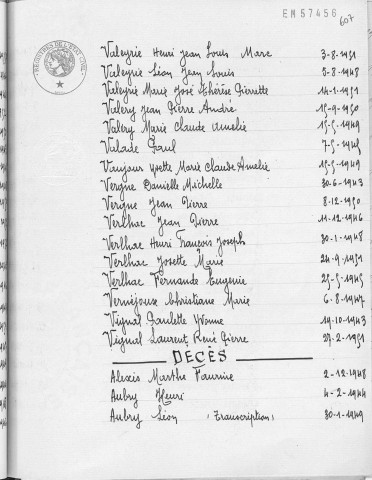 EM57456
607
Valeyrie Henri Jean Louis Marc 3-8-1951
Valeyrie Léon Jean Louis 5-8-1948
Valeyrie Marie José Thérèse Pierrette 14-1-1951
Valéry Jean Pierre André 15-9-1950
Valéry Marie Claude Amélie 15-5-1949
Valade Paul 7-5-1945
Vaujour Yvette Marie Claude Amélie 15-5-1949
Vergne Danielle Michelle 30-6-1943
Vergne Jean Pierre 8-12-1950
Verlhac Jean Pierre 11-12-1946
Verlhac Henri François Joseph 30-1-1948
Verlhac Josette Marie 24-9-1951
Verlhac Fernande Eugénie 25-5-1945
Verniéjoux Christiane Marie 6-8-1947
Vignal Paulette Yvonne 19-10-1943
Vignal Laurent René Pierre 27-2-1951
DECÈS
Alexis Marthe Faurnie 2-12-1948
Aubry Henri 4-2-1944
Aubry Léon (Transcription) 30-1-1949